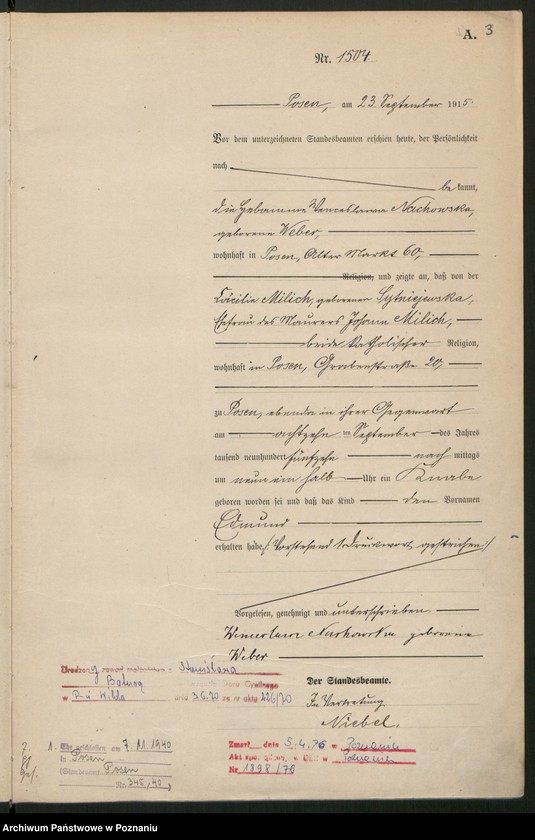 A. 3
Nr. 1504
Posen, am 23 September 1915.
Vor dem unterzeichneten Standesbeamten erschien heute, der Persönlichkeit
nach
be kannt,
die Hebamme Wenceslawa Nachowska,
geborene Weber,
wohnhaft in Posen, Alter Markt 60,
Religion, und zeigte an, daß von der
Cäcilie Milich, geborenen Sytniejewska,
Ehefrau des Maurers Johann Milich,
beide katholischer Religion,
wohnhaft in Posen, Grabenstraße 20,
zu Posen, ebenda in ihrer Gegenwart
am achtzehn ten September des Jahres
tausend neunhundert fünfzehn nach mittags
um neun ein halb Uhr ein Knabe
geboren worden sei und daß das Kind den Vornamen
Edmund
erhalten habe. /Vorstehend 1 Druckwort gestrichen./
Vorgelesen, genehmigt und unterschrieben
Wencslawa Nachowska geborene
Weber
Der Standesbeamte.
In Vertretung
Niebel.
Urodzony zawarł małżeństwo z Stanisława
w P-ń Wilda dnia 3.6.70 za nr aktu 226/70
1. Ehe geschlossen am 7.11.1940
in Posen
(Standesamt Posen
Nr. 345/40)
Zmarł dnia 5.4.76 w Poznaniu
Akt sporządzono w USC w Poznaniu
Nr 1898/76
Archiwum Państwowe w Poznaniu